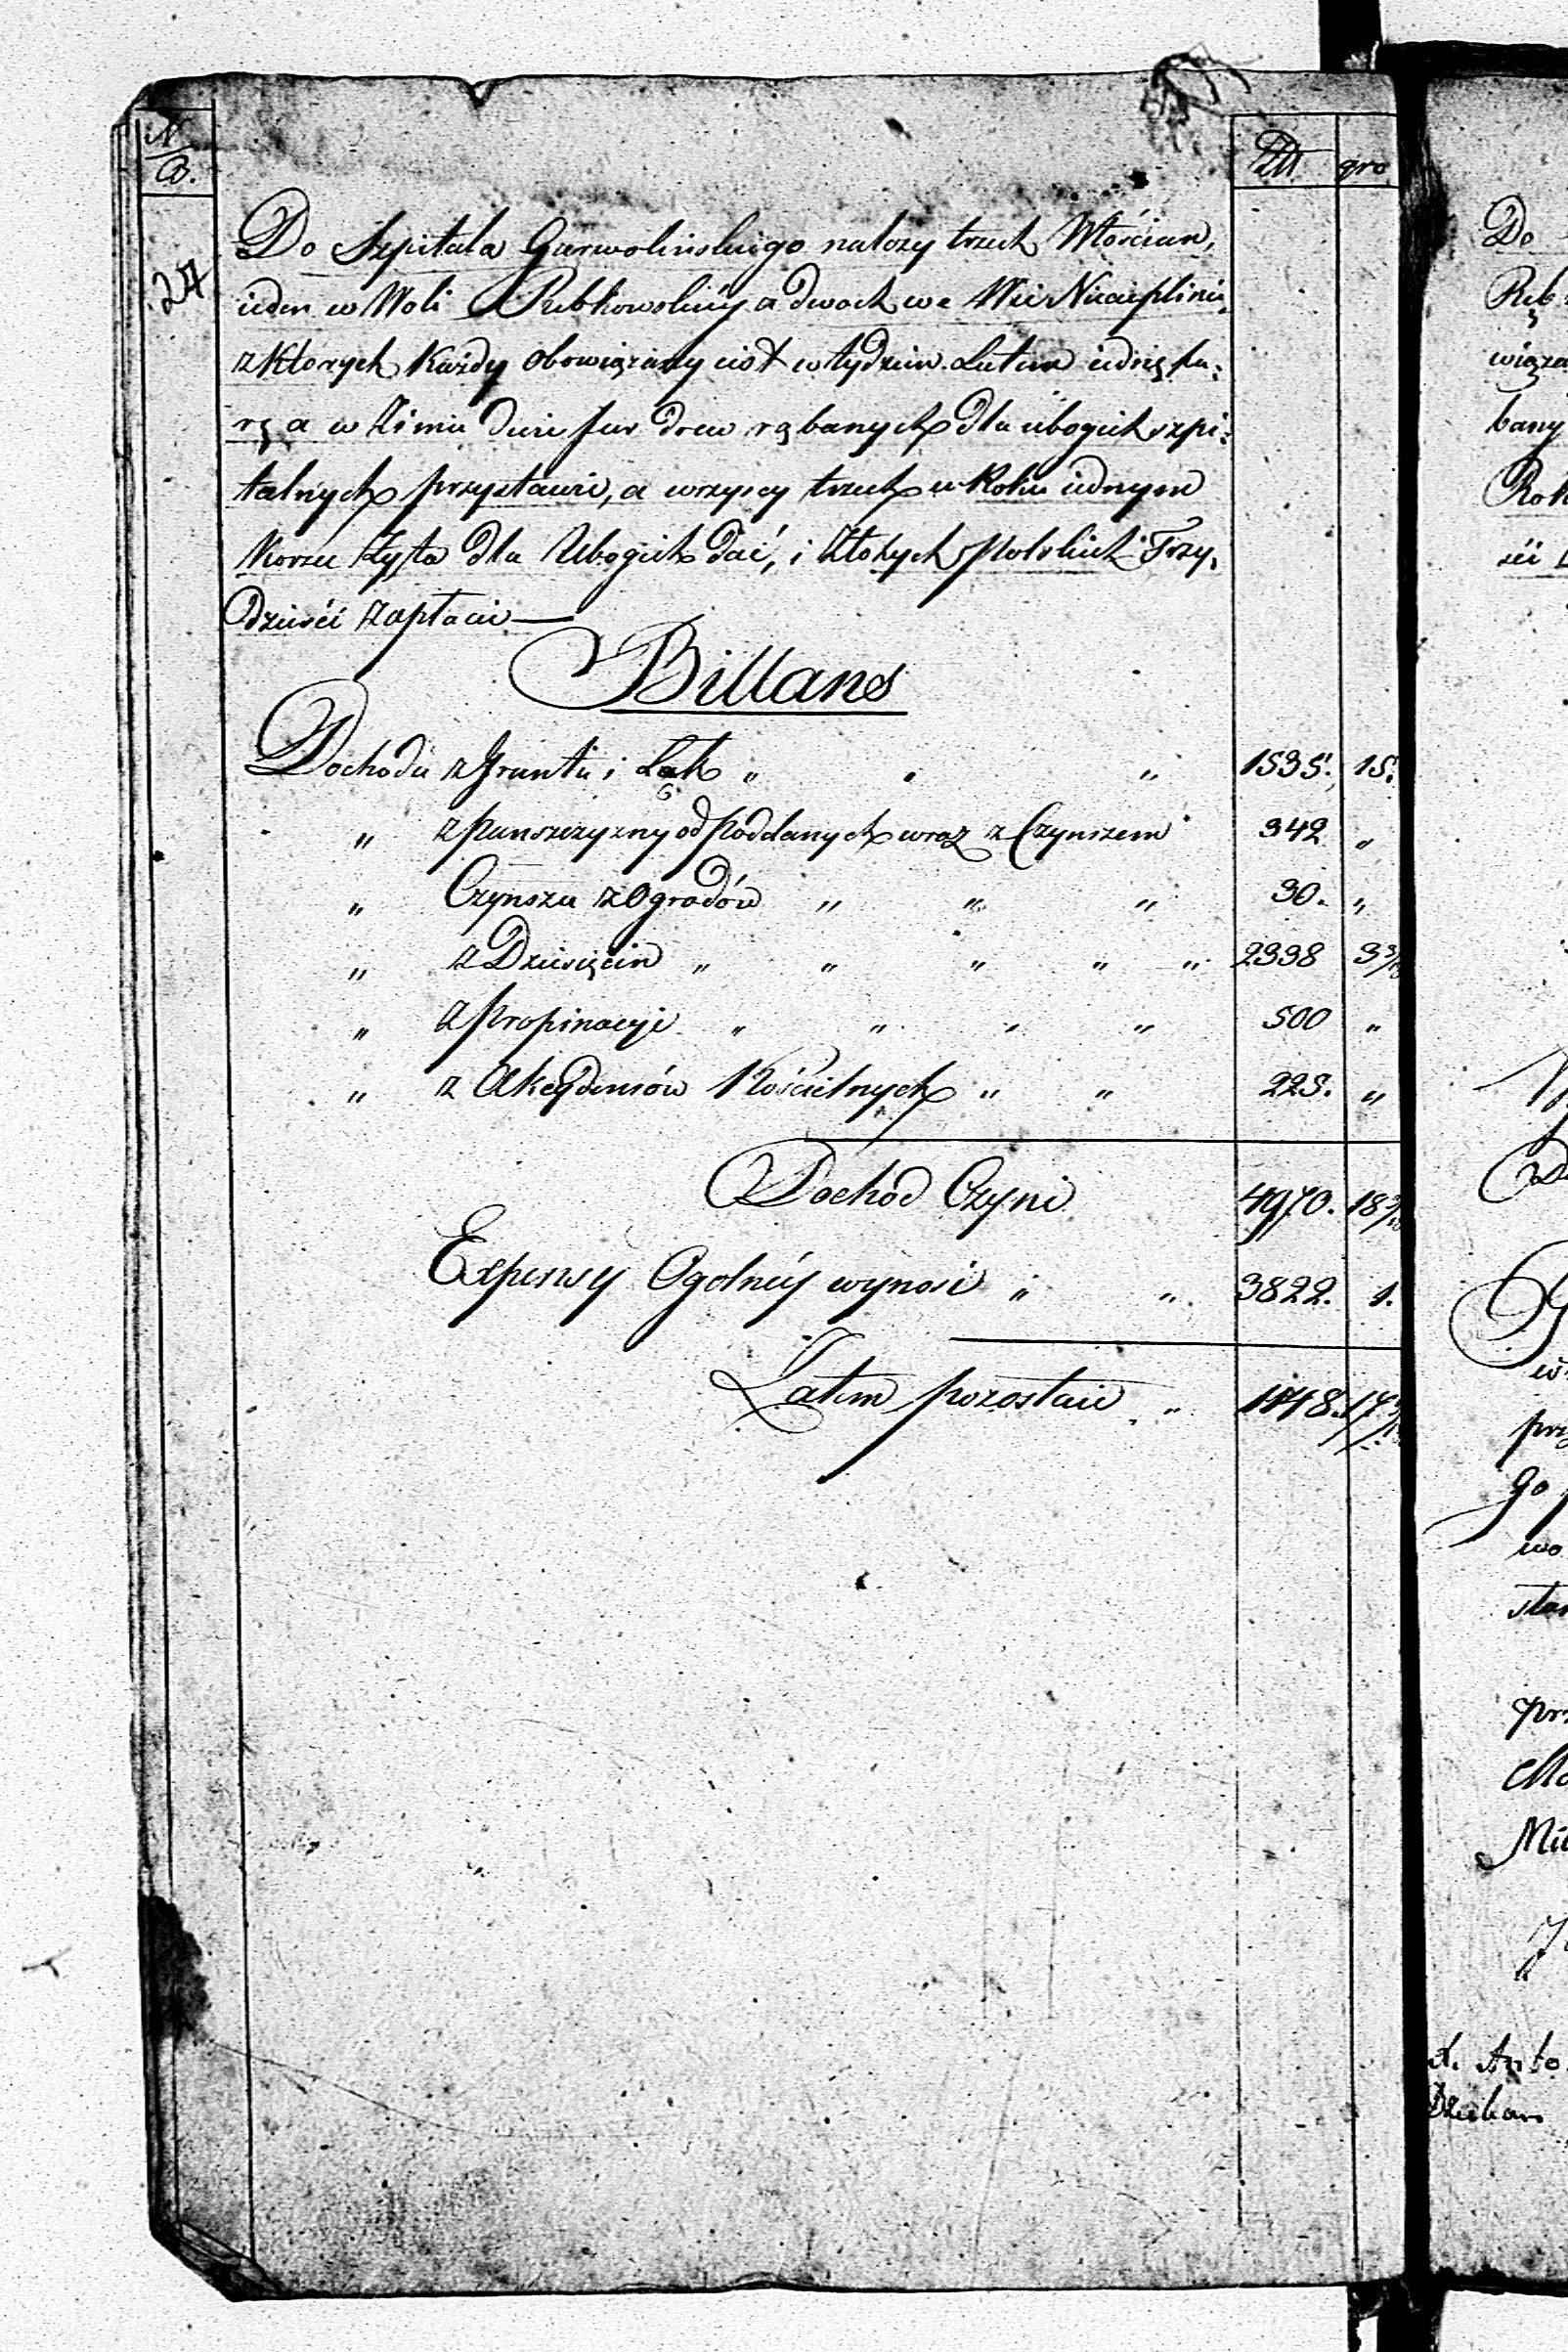 N
B.
Złł gro
24
Do Szpitala Garwolińskiego należy trzech Włościan,
ieden w Woli Rębkowskiey a dwoch we Wsi Niecieplinie,
z ktorych każdy obowiązany iest w tydzien Latem iednę fu:
rę a w Zimie dwie fur drew rąbanych dla ubogich szpi:
talnych przystawić, a wszyscy trzech w Roku iednym
Korzec Żyta dla Ubogich dać, i Złotych polskich Trzy,
dzieści zapłacić —
Billans
Dochodu z Gruntu i Łąk „ „ „ 1535. 15.
„ z panszczyzny od poddanych wraz z Czynszem 342 „
„ Czynszu z Ogrodów „ „ „ 30. „
„ z Dziesięcin „ „ „ „ „ 2338 3
„ z propinacyi „ „ „ „ 500 „
„ z Akcydensów Kościelnych „ „ 225. „
Dochód Czyni 4970. 18
Expensy Ogolney wynosi „ „ 3822. 1.
Zatem pozostaie „ 1148. 17
Do
Ręb
wiąza
bany
Rok
ści
w
prz
go p
wo
stan
prz
Mo
Mie
X. Anto
Dziekan